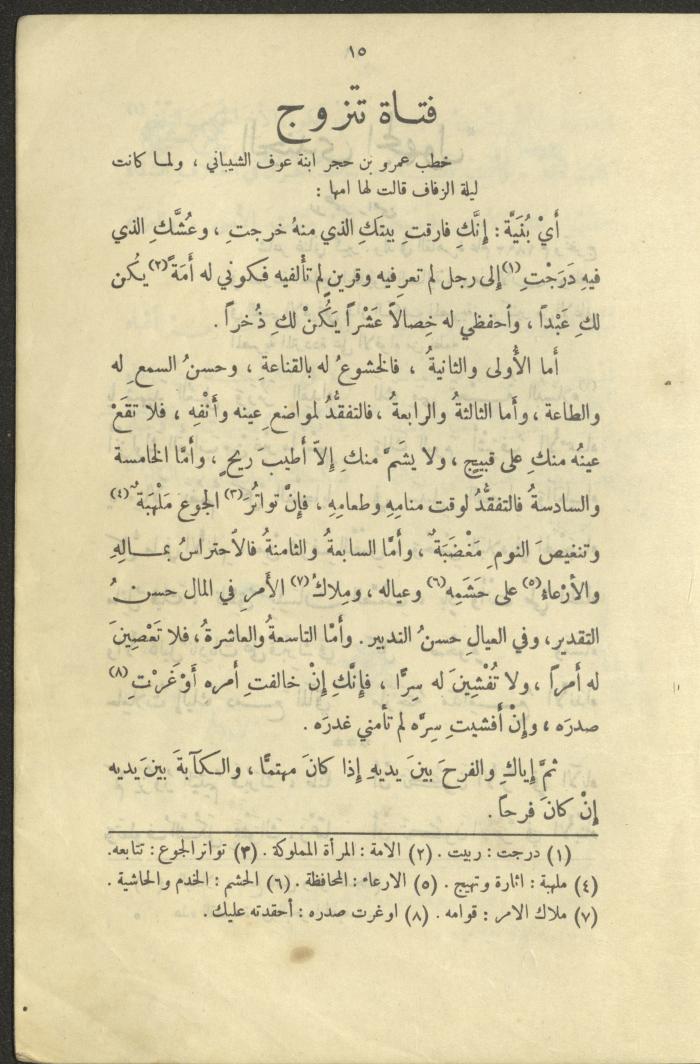 ١٥
فتاة تتزوج
خطب عمرو بن حجر ابنة عوف الشيباني ، ولما كانت
ليلة الزفاف قالت لها امها :
أَيْ بُنَيَّة : إِنَّكِ فارقتِ بيتَكِ الذي منهُ خرجتِ ، وعُشَّكِ الذي
فيهِ دَرَجْتِ (١) إلى رجل لم تعرفيه وقرينٍ لم تألفيه فكوني له أَمَةً (٢) يكُن
لكِ عَبْداً ، واحفظي له خِصالاً عَشْراً يَكُنْ لكِ ذُخراً .
أَما الأُولى والثانيةُ ، فالخشوعُ له بالقناعةِ ، وحسنُ السمعِ له
والطاعة ، وأَما الثالثةُ والرابعةُ ، فالتفقُّدُ لمواضعِ عينه وأَنْفِه ، فلا تقَعْ
عينُه منكِ على قبيحٍ ، ولا يشَمَّ منكِ إِلاّ أَطيبَ ريحٍ ، وأَمَّا الخامسة
والسادسةُ فالتفقُّدُ لوقت منامِهِ وطعامِهِ ، فإِنَّ تواتُرَ (٣) الجوع مَلْهَبَةٌ (٤)
وتنغيصَ النومِ مَغْضَبَةٌ ، وأَمَّا السابعةُ والثامنةُ فالاحتراسُ بمـالِهِ
والأرْعاءِ (٥) على حَشَمِه (٦) وعياله ، ومِلاكُ (٧) الأَمرِ في المال حسنُ
التقدير ، وفي العيالِ حسنُ التدبير . وأَمَّا التاسعةُ والعاشرةُ ، فلا تَعْصِينَ
له أَمراً ، ولا تُفْشِينَ له سِرًّا ، فإِنَّكِ إِنْ خالفتِ أَمره أَوْغَرْتِ (٨)
صدرَه ، وإِنْ أَفشيتِ سِرَّه لم تأمني غدرَه .
ثمَّ إِياكِ والفرحَ بينَ يديهِ إِذا كانَ مهتمًّا ، والكآبةَ بينَ يديه
إِنْ كانَ فرحاً .
(١) درجت : ربيت . (٢) الامة : المرأة المملوكة . (٣) تواتر الجوع : تتابعه .
(٤) ملهبة : اثارة وتهيج . (٥) الارعاء : المحافظة . (٦) الحشم : الخدم والحاشية .
(٧) ملاك الامر : قوامه . (٨) اوغرت صدره : أحقدته عليك .